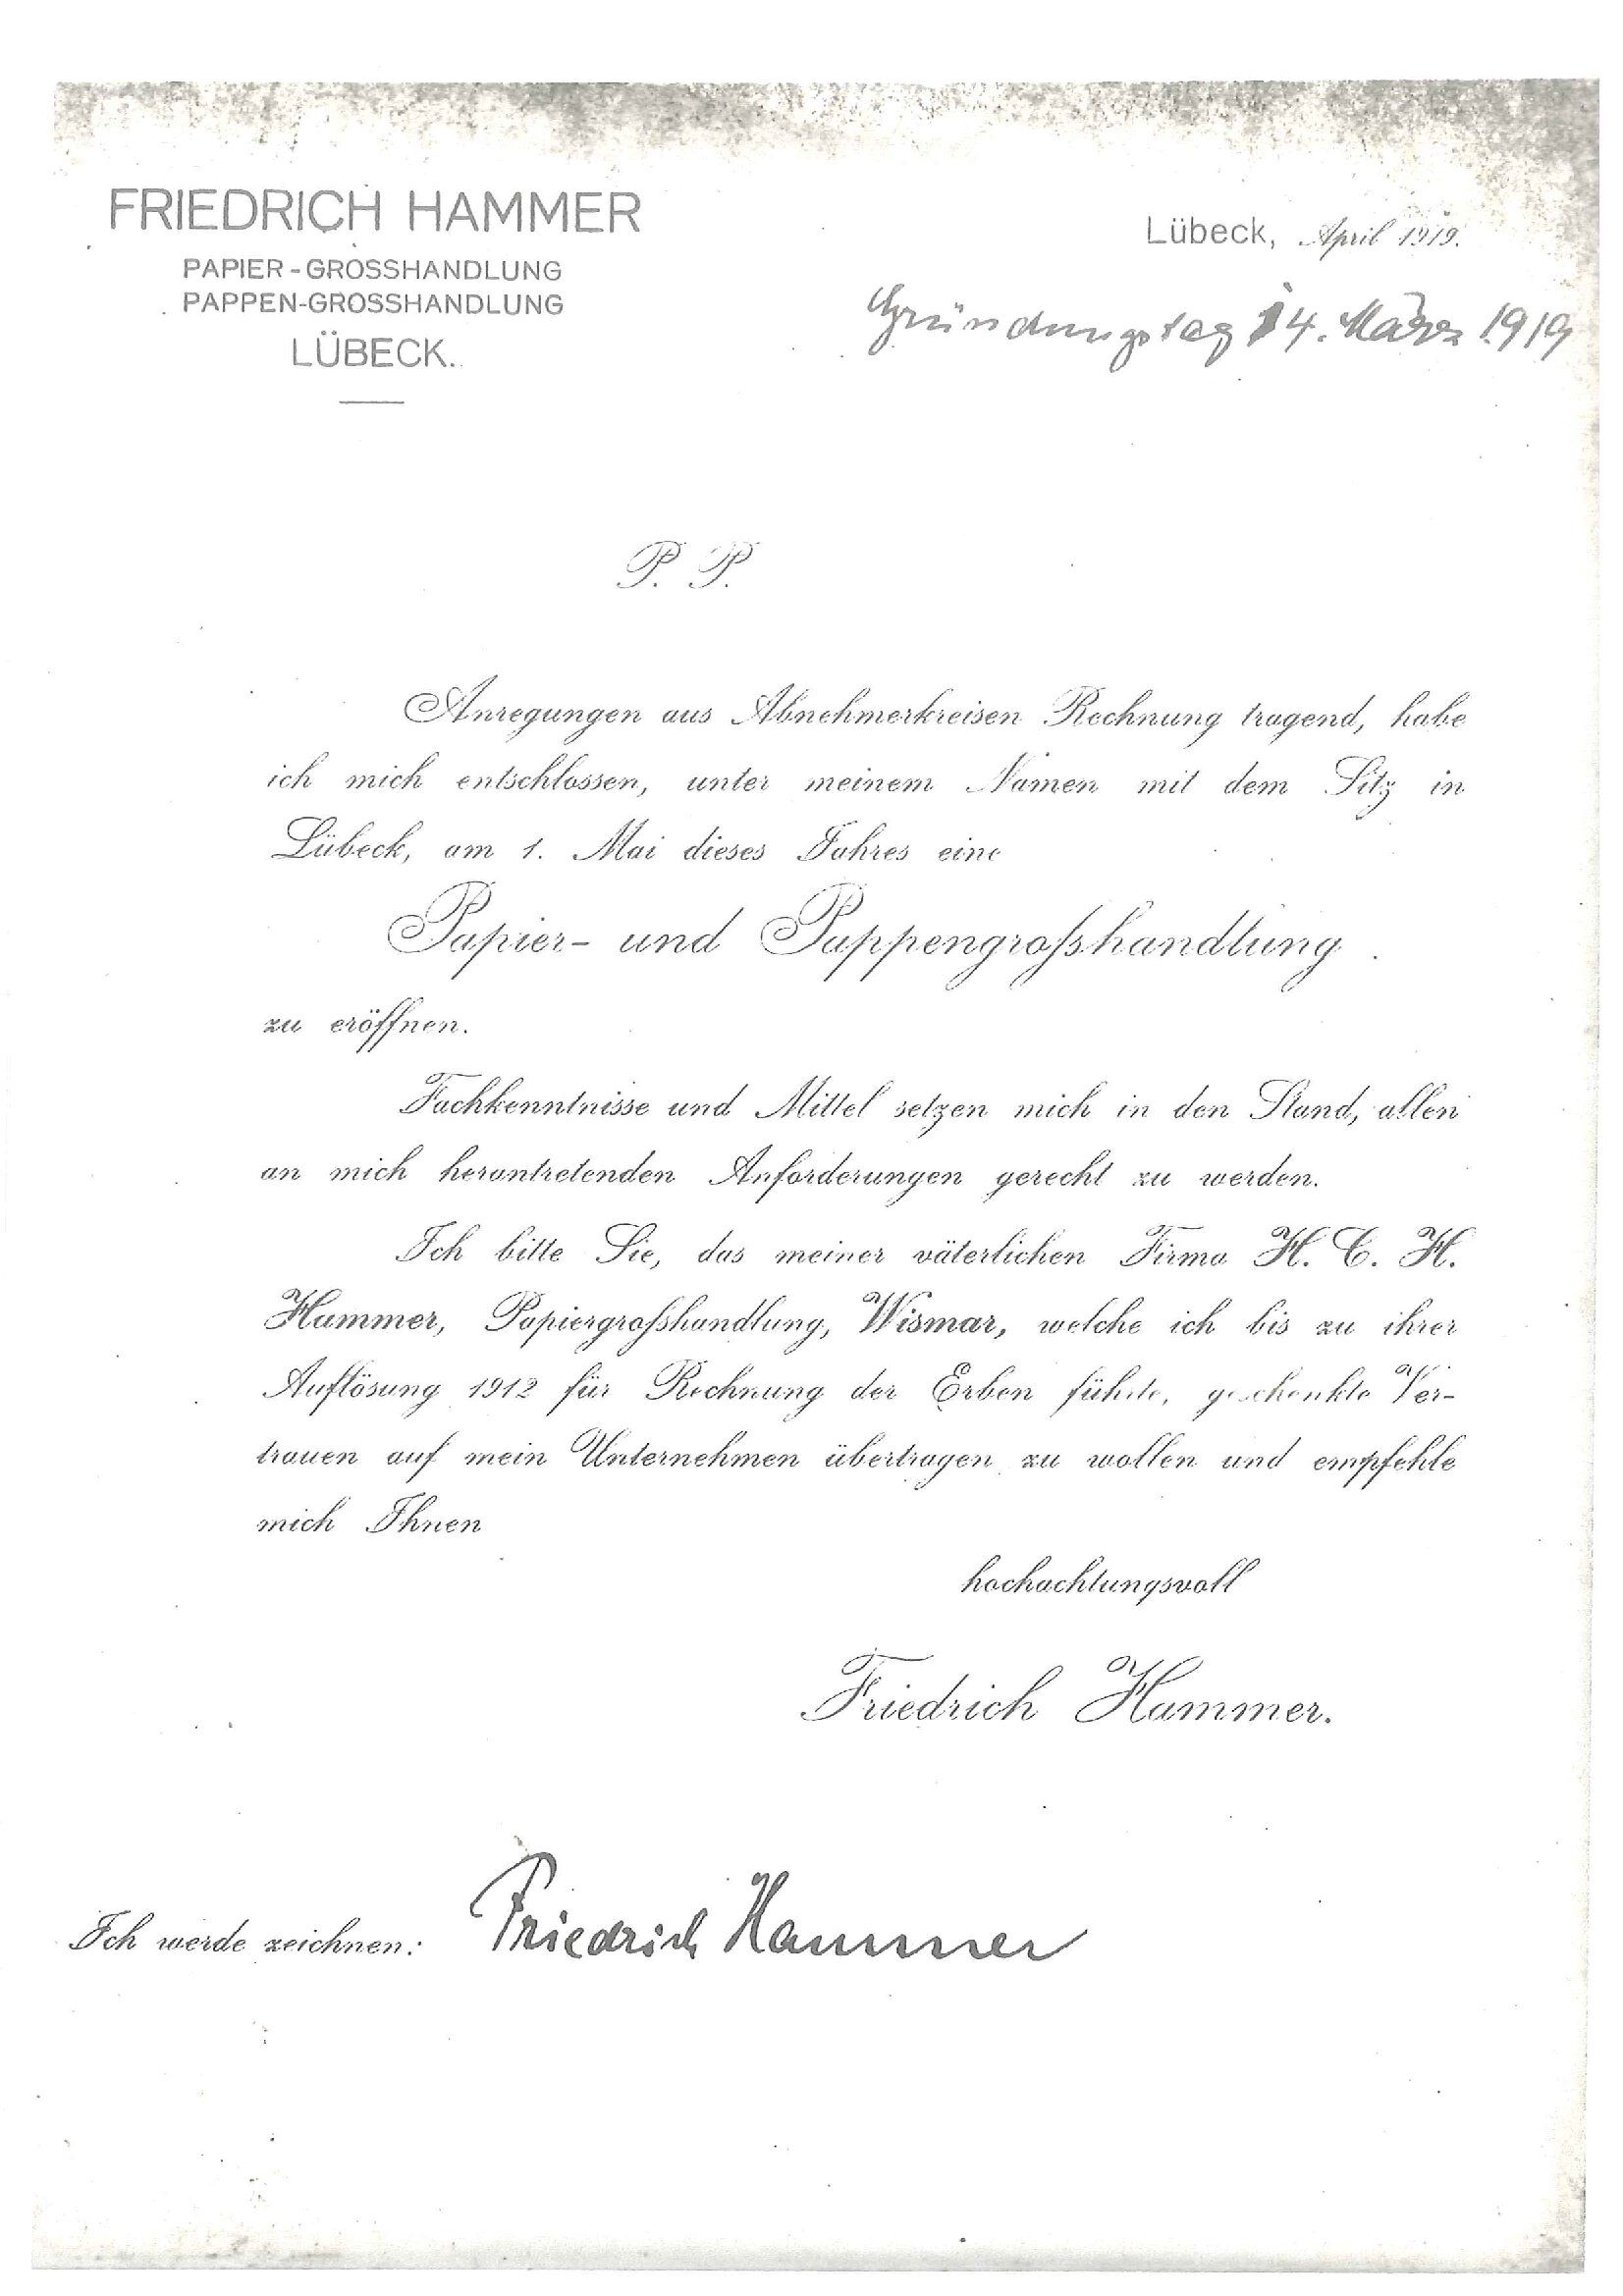 FRIEDRICH HAMMER
PAPIER-GROSSHANDLUNG
PAPPEN-GROSSHANDLUNG
LÜBECK.
Lübeck, April 1919.
Gründungstag 14. März 1919
P. P.
Anregungen aus Abnehmerkreisen Rechnung tragend, habe
ich mich entschlossen, unter meinem Namen mit dem Sitz in
Lübeck, am 1. Mai dieses Jahres eine
Papier- und Pappengroſshandlung
zu eröffnen.
Fachkenntnisse und Mittel setzen mich in den Stand, allen
an mich herantretenden Anforderungen gerecht zu werden.
Ich bitte Sie, das meiner väterlichen Firma H. C. H.
Hammer, Papiergroſshandlung, Wismar, welche ich bis zu ihrer
Auflösung 1912 für Rechnung der Erben führte, geschenkte Ver-
trauen auf mein Unternehmen übertragen zu wollen und empfehle
mich Ihnen
hochachtungsvoll
Friedrich Hammer.
Ich werde zeichnen: Friedrich Hammer